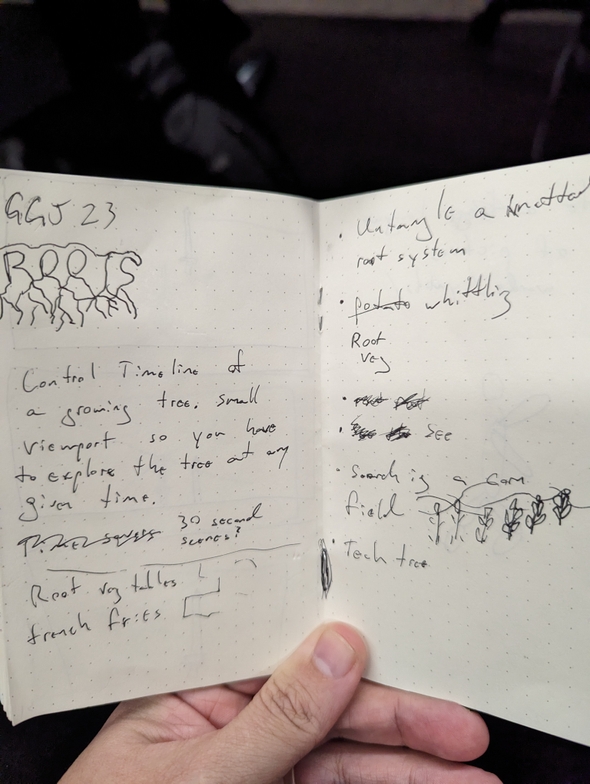 GGJ 23
ROOTS
Control Timeline of
a growing tree. small
viewport so you have
to explore the tree at any
given time.
30 second
scenes?
Root veg tables
french fries
• Untangle a
root system
• potato whittling
Root
veg
•
• See
• Searching a corn
field
• Tech tree